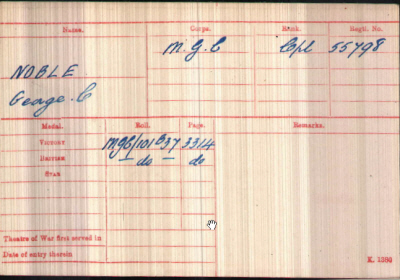 Name. Corps. Rank. Regtl. No.
M.G.C Cpl 55798
NOBLE
George. C
Medal. Roll. Page. Remarks.
VICTORY MGC/101B37 3314
BRITISH — do — do
STAR
Theatre of War first served in
Date of entry therein
K. 1380